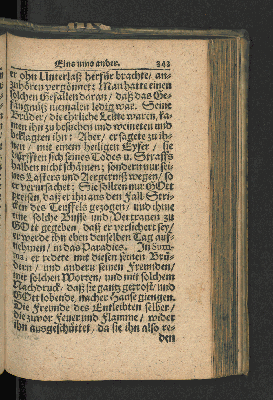 Eins umb ander. 343
er ohn Unterlaß herfür brachte / an-
zuhören vergönnet: Man hatte einen
solchen Gefallen daran / daß das Ge-
fängnüß niemalen ledig war. Seine
Brüder / die ehrliche Leute waren, ka-
men ihn zu besuchen und weineten und
beklagten ihn: Aber / er sagete zu ih-
nen / mit einem heiligen Eyfer / sie
dörfften sich seines Todes u. Straffs
halben nicht schämen; sondern nur sei-
nes Lasters und Aergernüß wegen, so
er verursachet: Sie sollten nur GOtt
preisen, daß er ihn aus den Fall-Stri-
cken des Teuffels gezogen / und ihme
eine solche Busse und Vertrauen zu
GOtt gegeben, daß er versichert sey /
er werde ihn eben denselben Tag auf-
nehmen / in das Paradies. In Sum-
ma / er redete mit diesen seinen Brü-
dern / und andern seinen Freunden /
mit solchen Worten / und mit solchem
Nachdruck, daß sie gantz getrost / und
GOtt lobende, nacher Hause giengen.
Die Freunde des Entleibten selber /
die zuvor Feuer und Flamme / wider
ihn ausgeschüttet, da sie ihn also re-
den